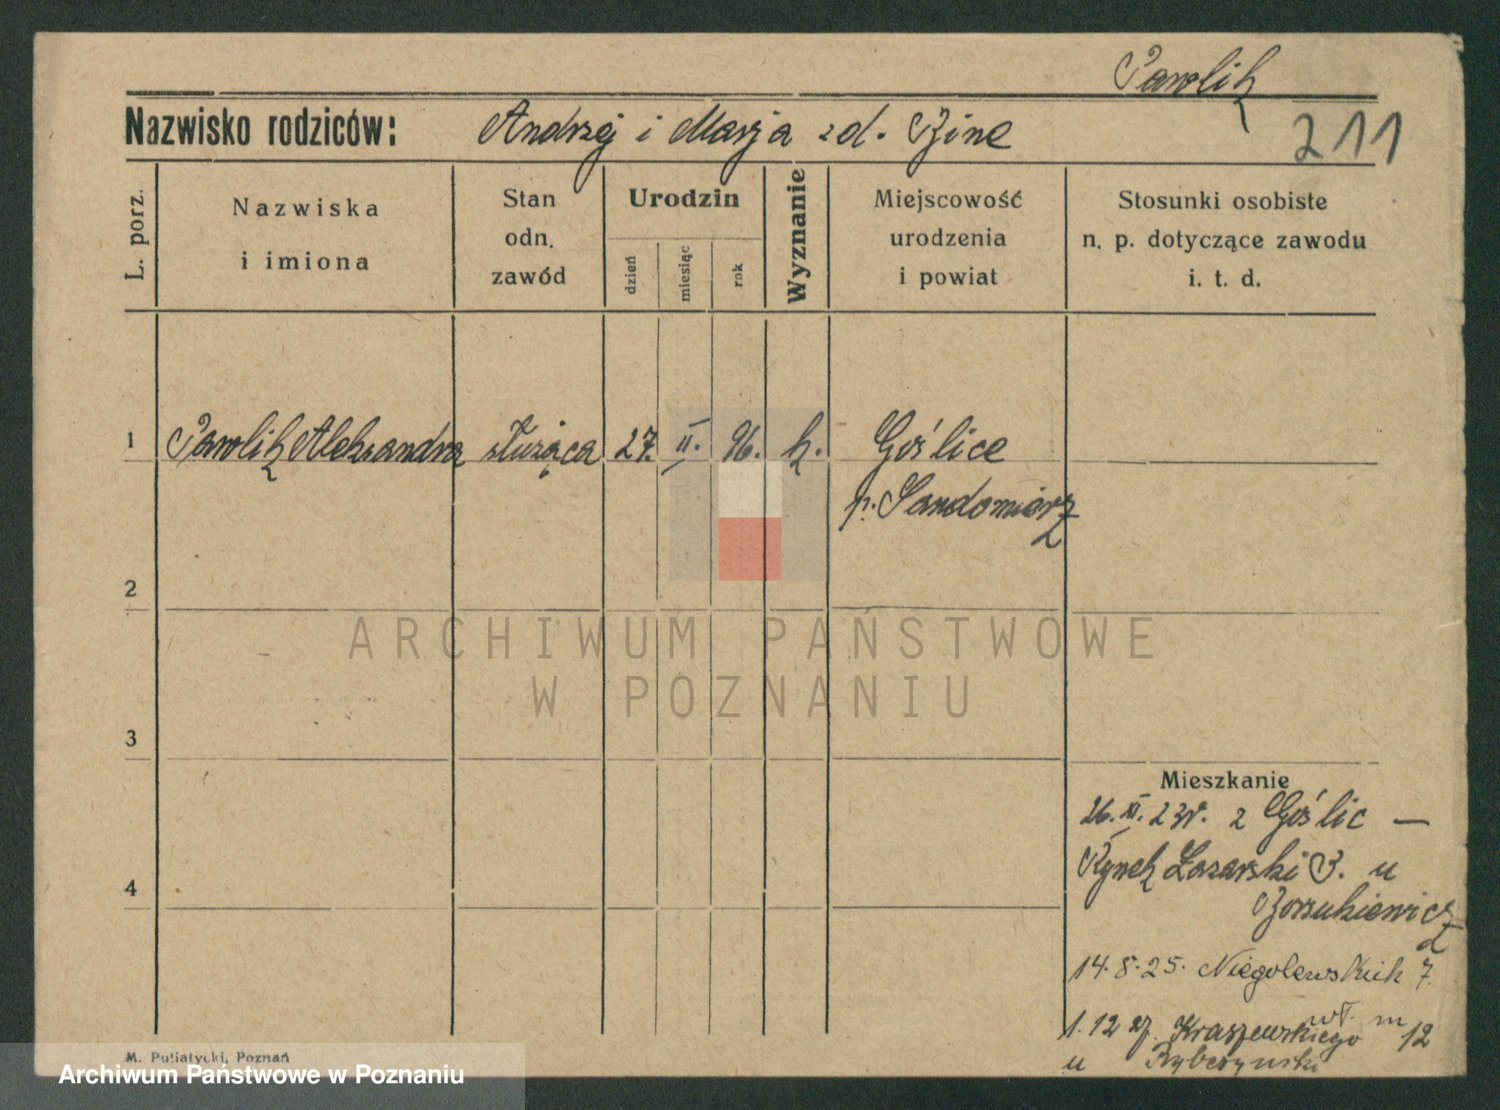 Pawlik
Nazwisko rodziców: Andrzej i Marja zd. Bine
211
L. porz.
Nazwiska
i imiona
Stan
odn.
zawód
Urodzin
dzień
miesiąc
rok
Wyznanie
Miejscowość
urodzenia
i powiat
Stosunki osobiste
n. p. dotyczące zawodu
i. t. d.
1 Pawlik Aleksandra służąca 27. II. 96. k. Goślice
p. Sandomierz
2
ARCHIWUM PAŃSTWOWE
W POZNANIU
3
Mieszkanie
26. XI. 23r. z Goślic —
Rynek Łazarski 3. u
4
Borsukiewicz
14.8.25. Niegolewskich 7.
1.12 27. Kraszewskiego wł. m 12
u Rybczyński
M. Putiatycki, Poznań
Archiwum Państwowe w Poznaniu